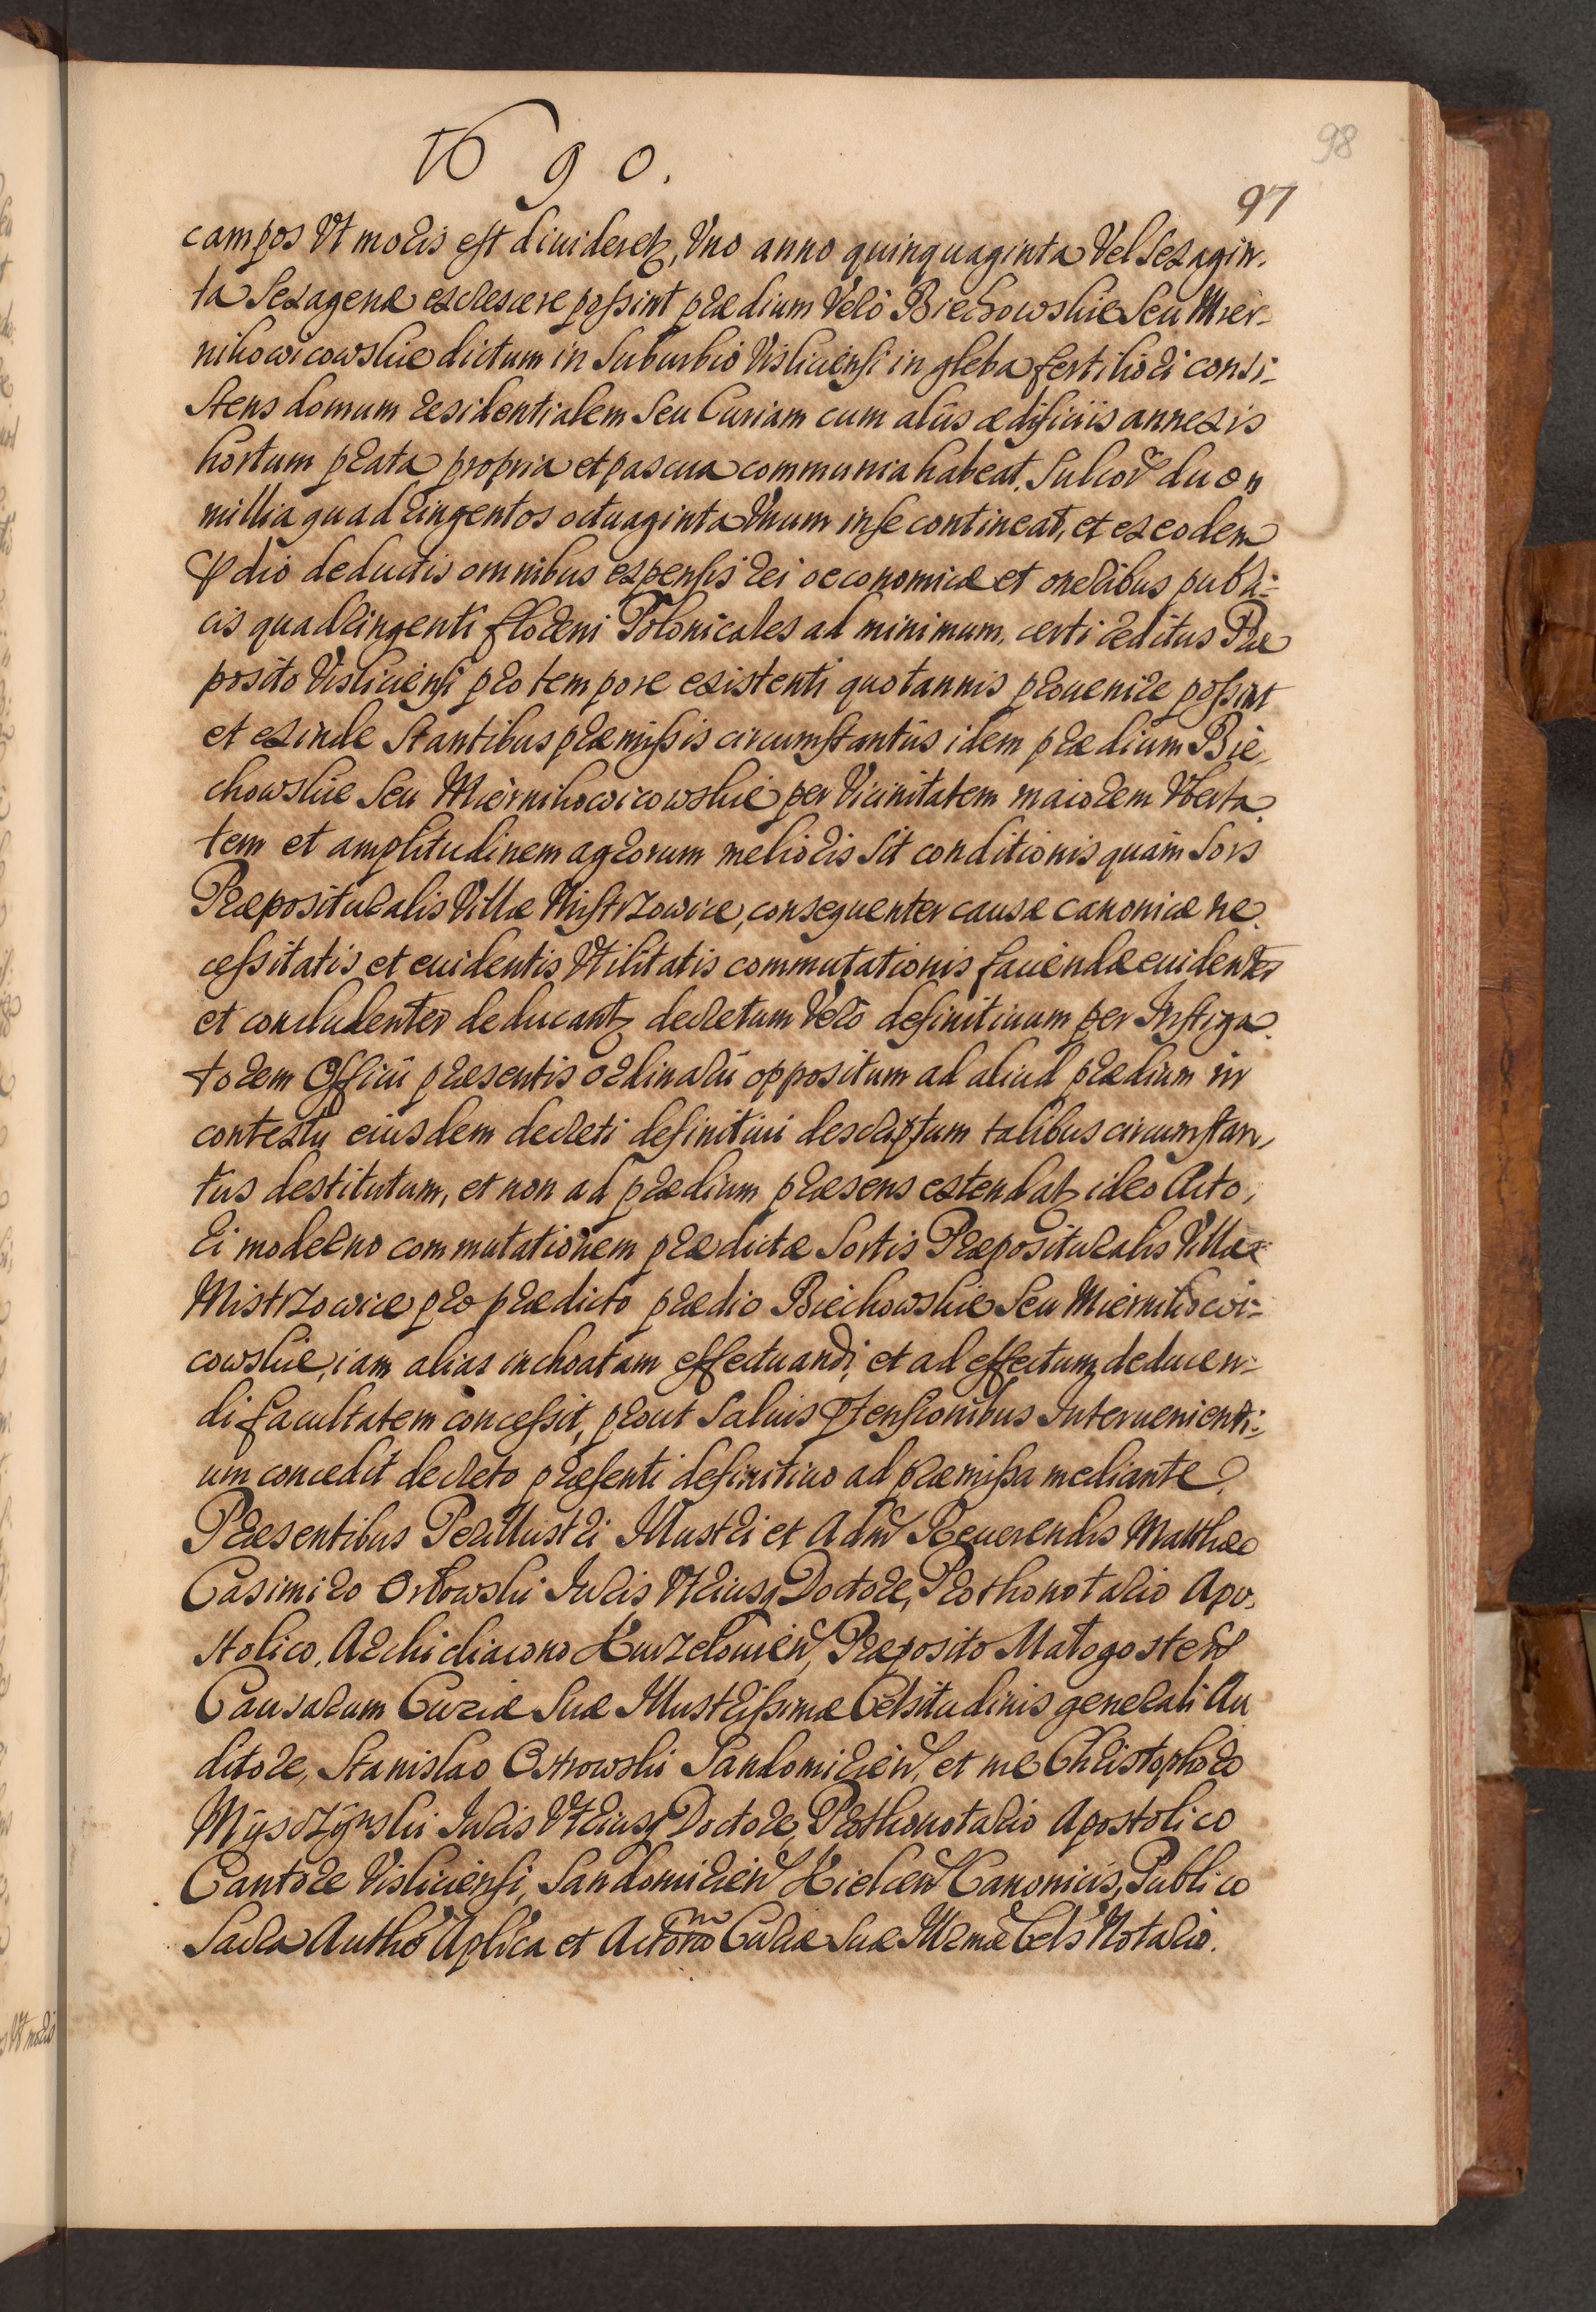 1690.
98
97
campos Vt moris est diuideretz, Vno anno quinquaginta Vel Sexagin-
ta Sexagenæ excrescere possint prædium Verò Biechowskie Seu Mier-
nikowicowskie dictum in Suburbio Visliciensi in gleba fertiliori consi-
stens domum residentialem Seu Curiam cum alijs ædificiis annexis
hortum prata propria et pascua communia habeat, Sulcor̃ duon
millia quadringentos octuaginta Vnum in se contineat, et ex eodem
Pdio deductis omnibus expensis rei oeconomicæ et oneribus publi-
cis quadringenti floreni Polonicales ad minimum, certi reditus Præ
posito Visliciensi pro tempore existenti quotannis prouenire possint
et exinde Stantibus præmissis circumstantijs idem prædium Bie-
chowskie Seu Miernikowicowskie per Vicinitatem maiorem Vberta-
tem et amplitudinem agrorum melioris Sit conditionis quàm Sors
Præposituralis Villæ Mistrzowice, consequenter causæ canonicæ ne-
cessitatis et euidentis Vtilitatis commutationis faciendæ euidenter
et concludenter deducantz decretum Verò definitiuum per Instiga-
torem Officii præsentis ordinarii oppositum ad aliud prædium in
contextu eiusdem decreti definitiui descriptum talibus circumstan-
tiis destitutum, et non ad prædium præsens extendatz ideo Acto-
ri moderno commutationem prædictæ Sortis Præposituralis Villæ
Mistrzowice pro prædicto prædio Biechowskie Seu Miernikowi-
cowskie, iam alias inchoatam effectuandi, et ad effectum deducen-
di facultatem concessit, prout Saluis Ptensionibus Interuenienti-
um concedit decreto præsenti definitiuo ad præmissa mediante.
Præsentibus Perillustri Illustri et Adm̃ Reuerendis Matthæo
Casimiro Orłowski Iuris Vtriusq Doctore, Prothonotario Apo-
stolico, Archidiacono Kurzelouien̄, Præposito Małogosten̄
Causarum Curiæ Suæ Illustrissimæ Celsitudinis generali Au
ditore, Stanislao Ostrowski Sandomirien̄, et me Christophoro
Myszczyński Iuris Vtriusq Doctore, Prothonotario Apostolico
Cantore Visliciensi, Sandomirien̄ Kielcen̄ Canonicis, Publico
Sacra Autho Aplica et Actorum Curiæ Suæ Illmæ Cels Notario.